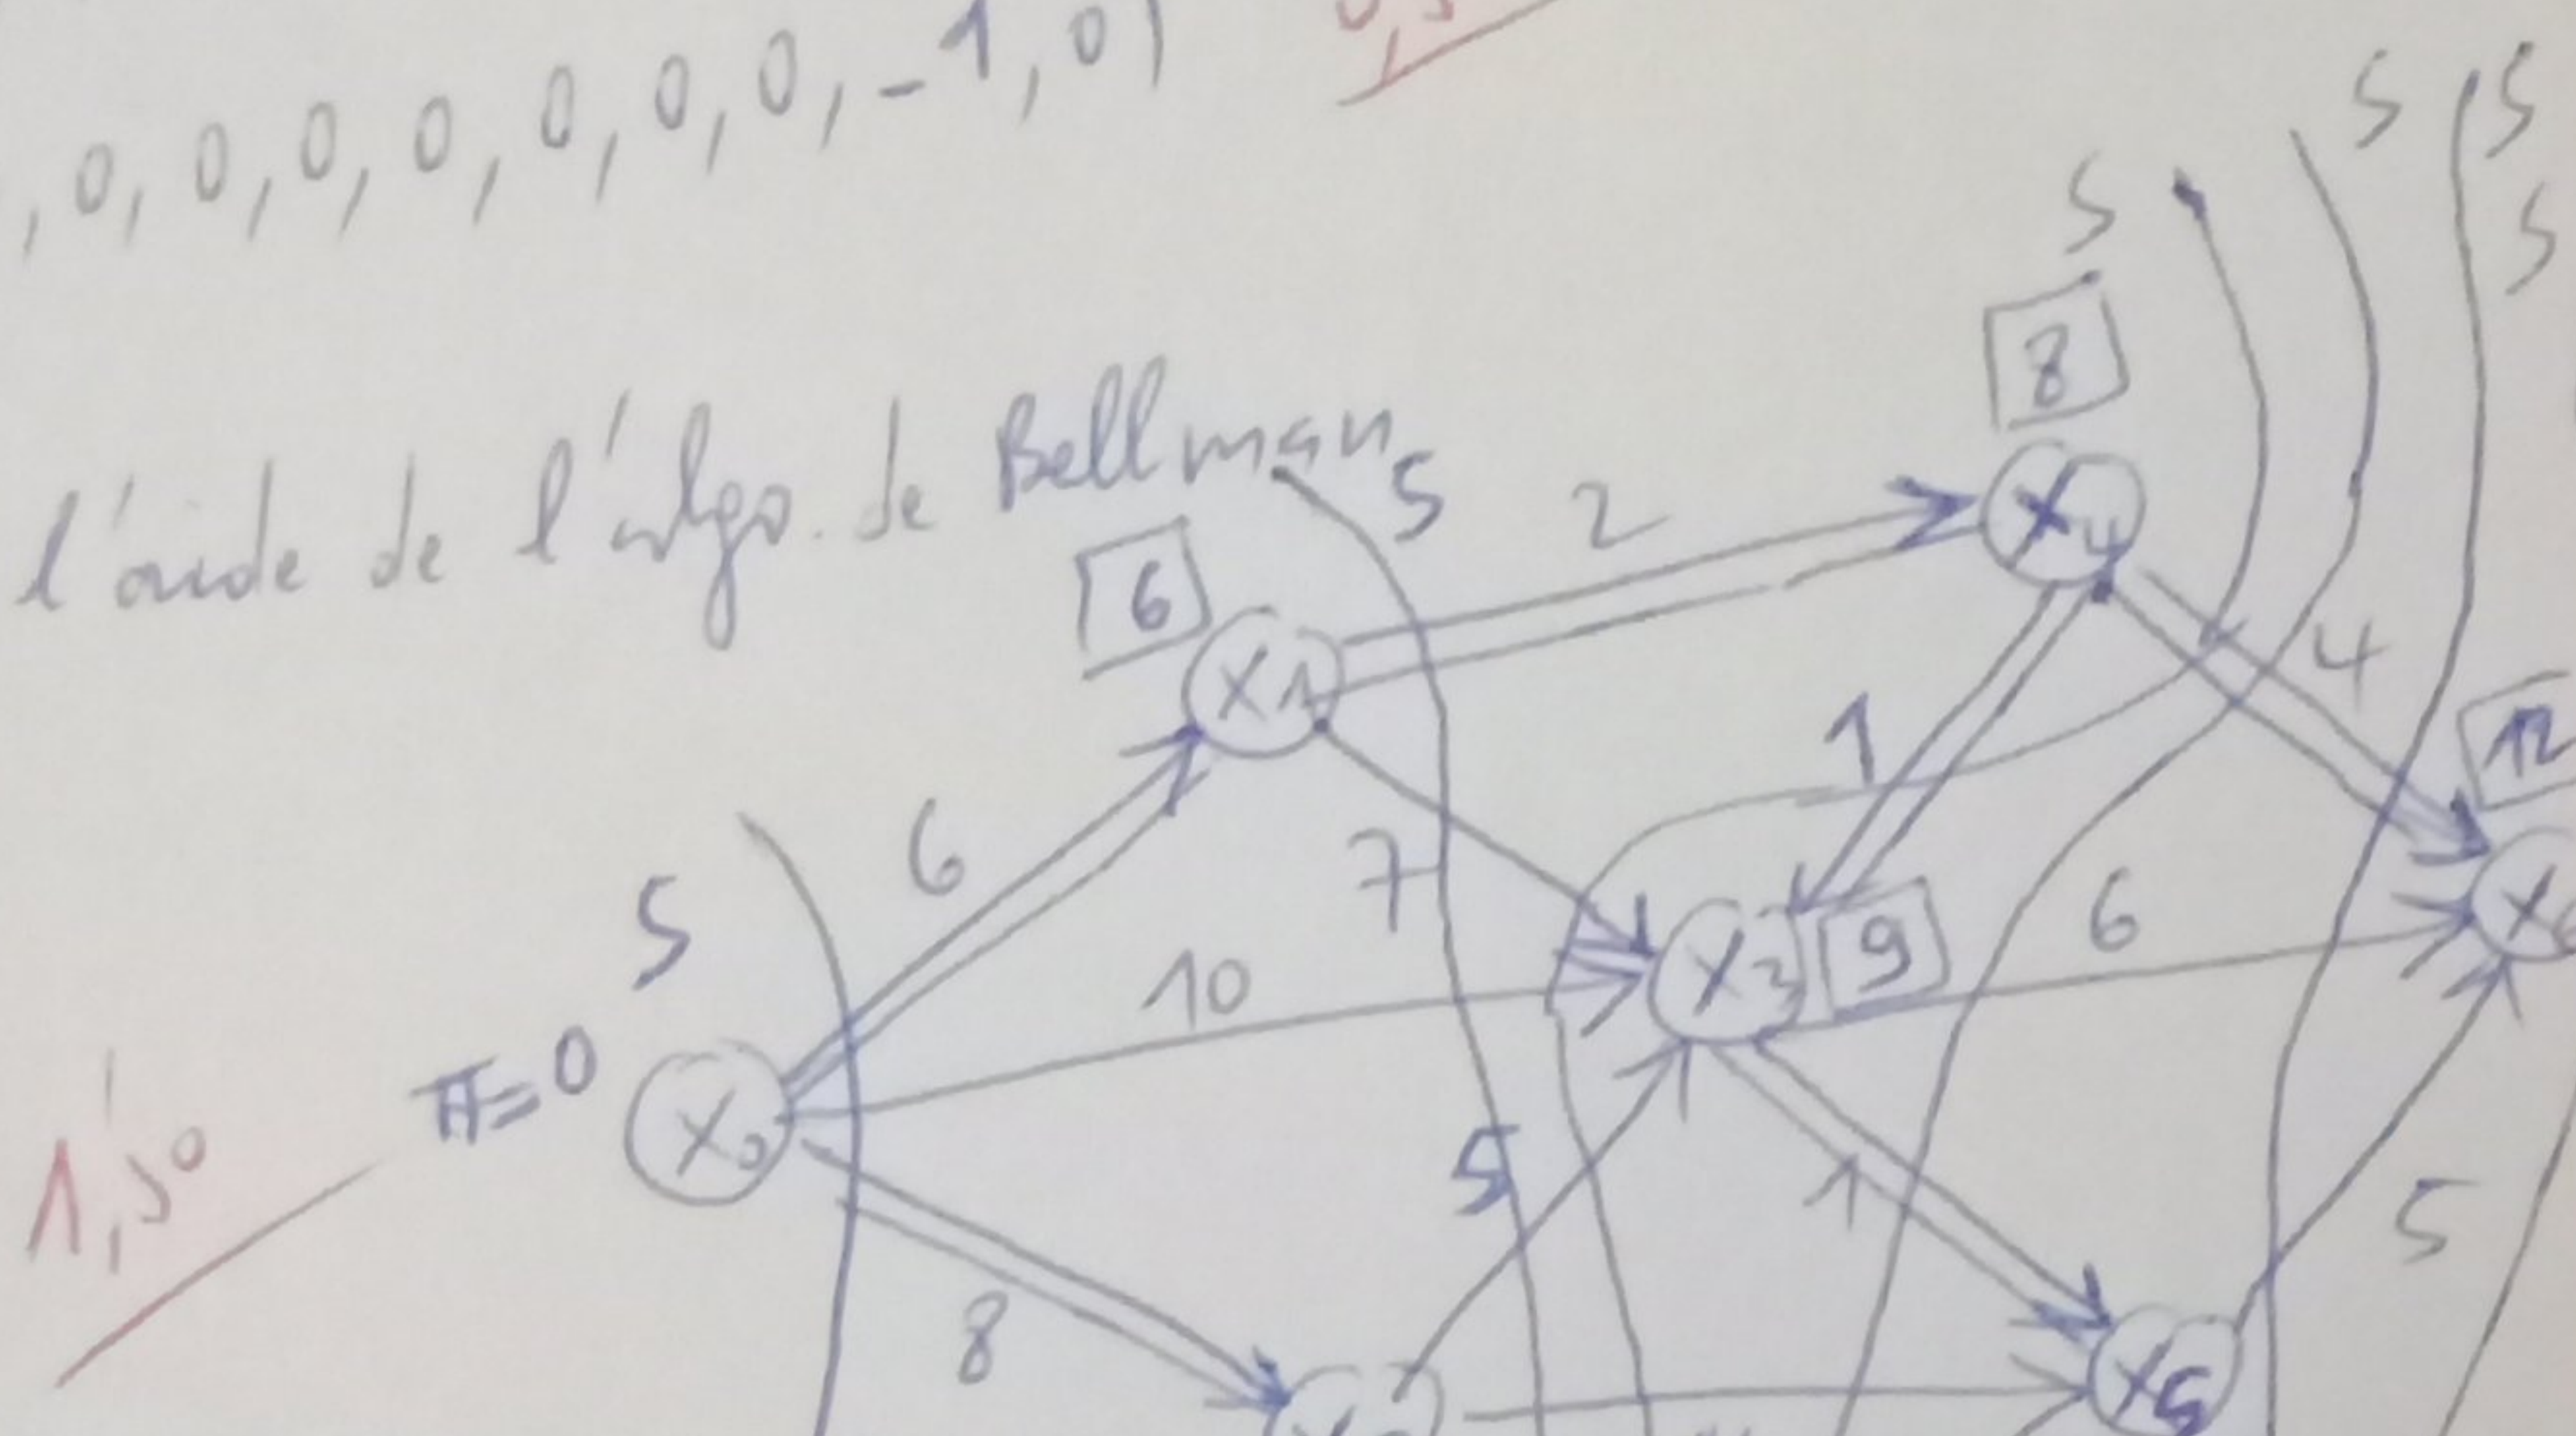 , 0, 0, 0, 0, 0, 0, 0, -1, 0)
l'aide de l'algo. de Bellman
S
S
S
S
S
8
X4
2
6
X1
4
12
1
6
7
S
X3
9
6
10
π=0
X0
1,50
5
1
5
8
X5